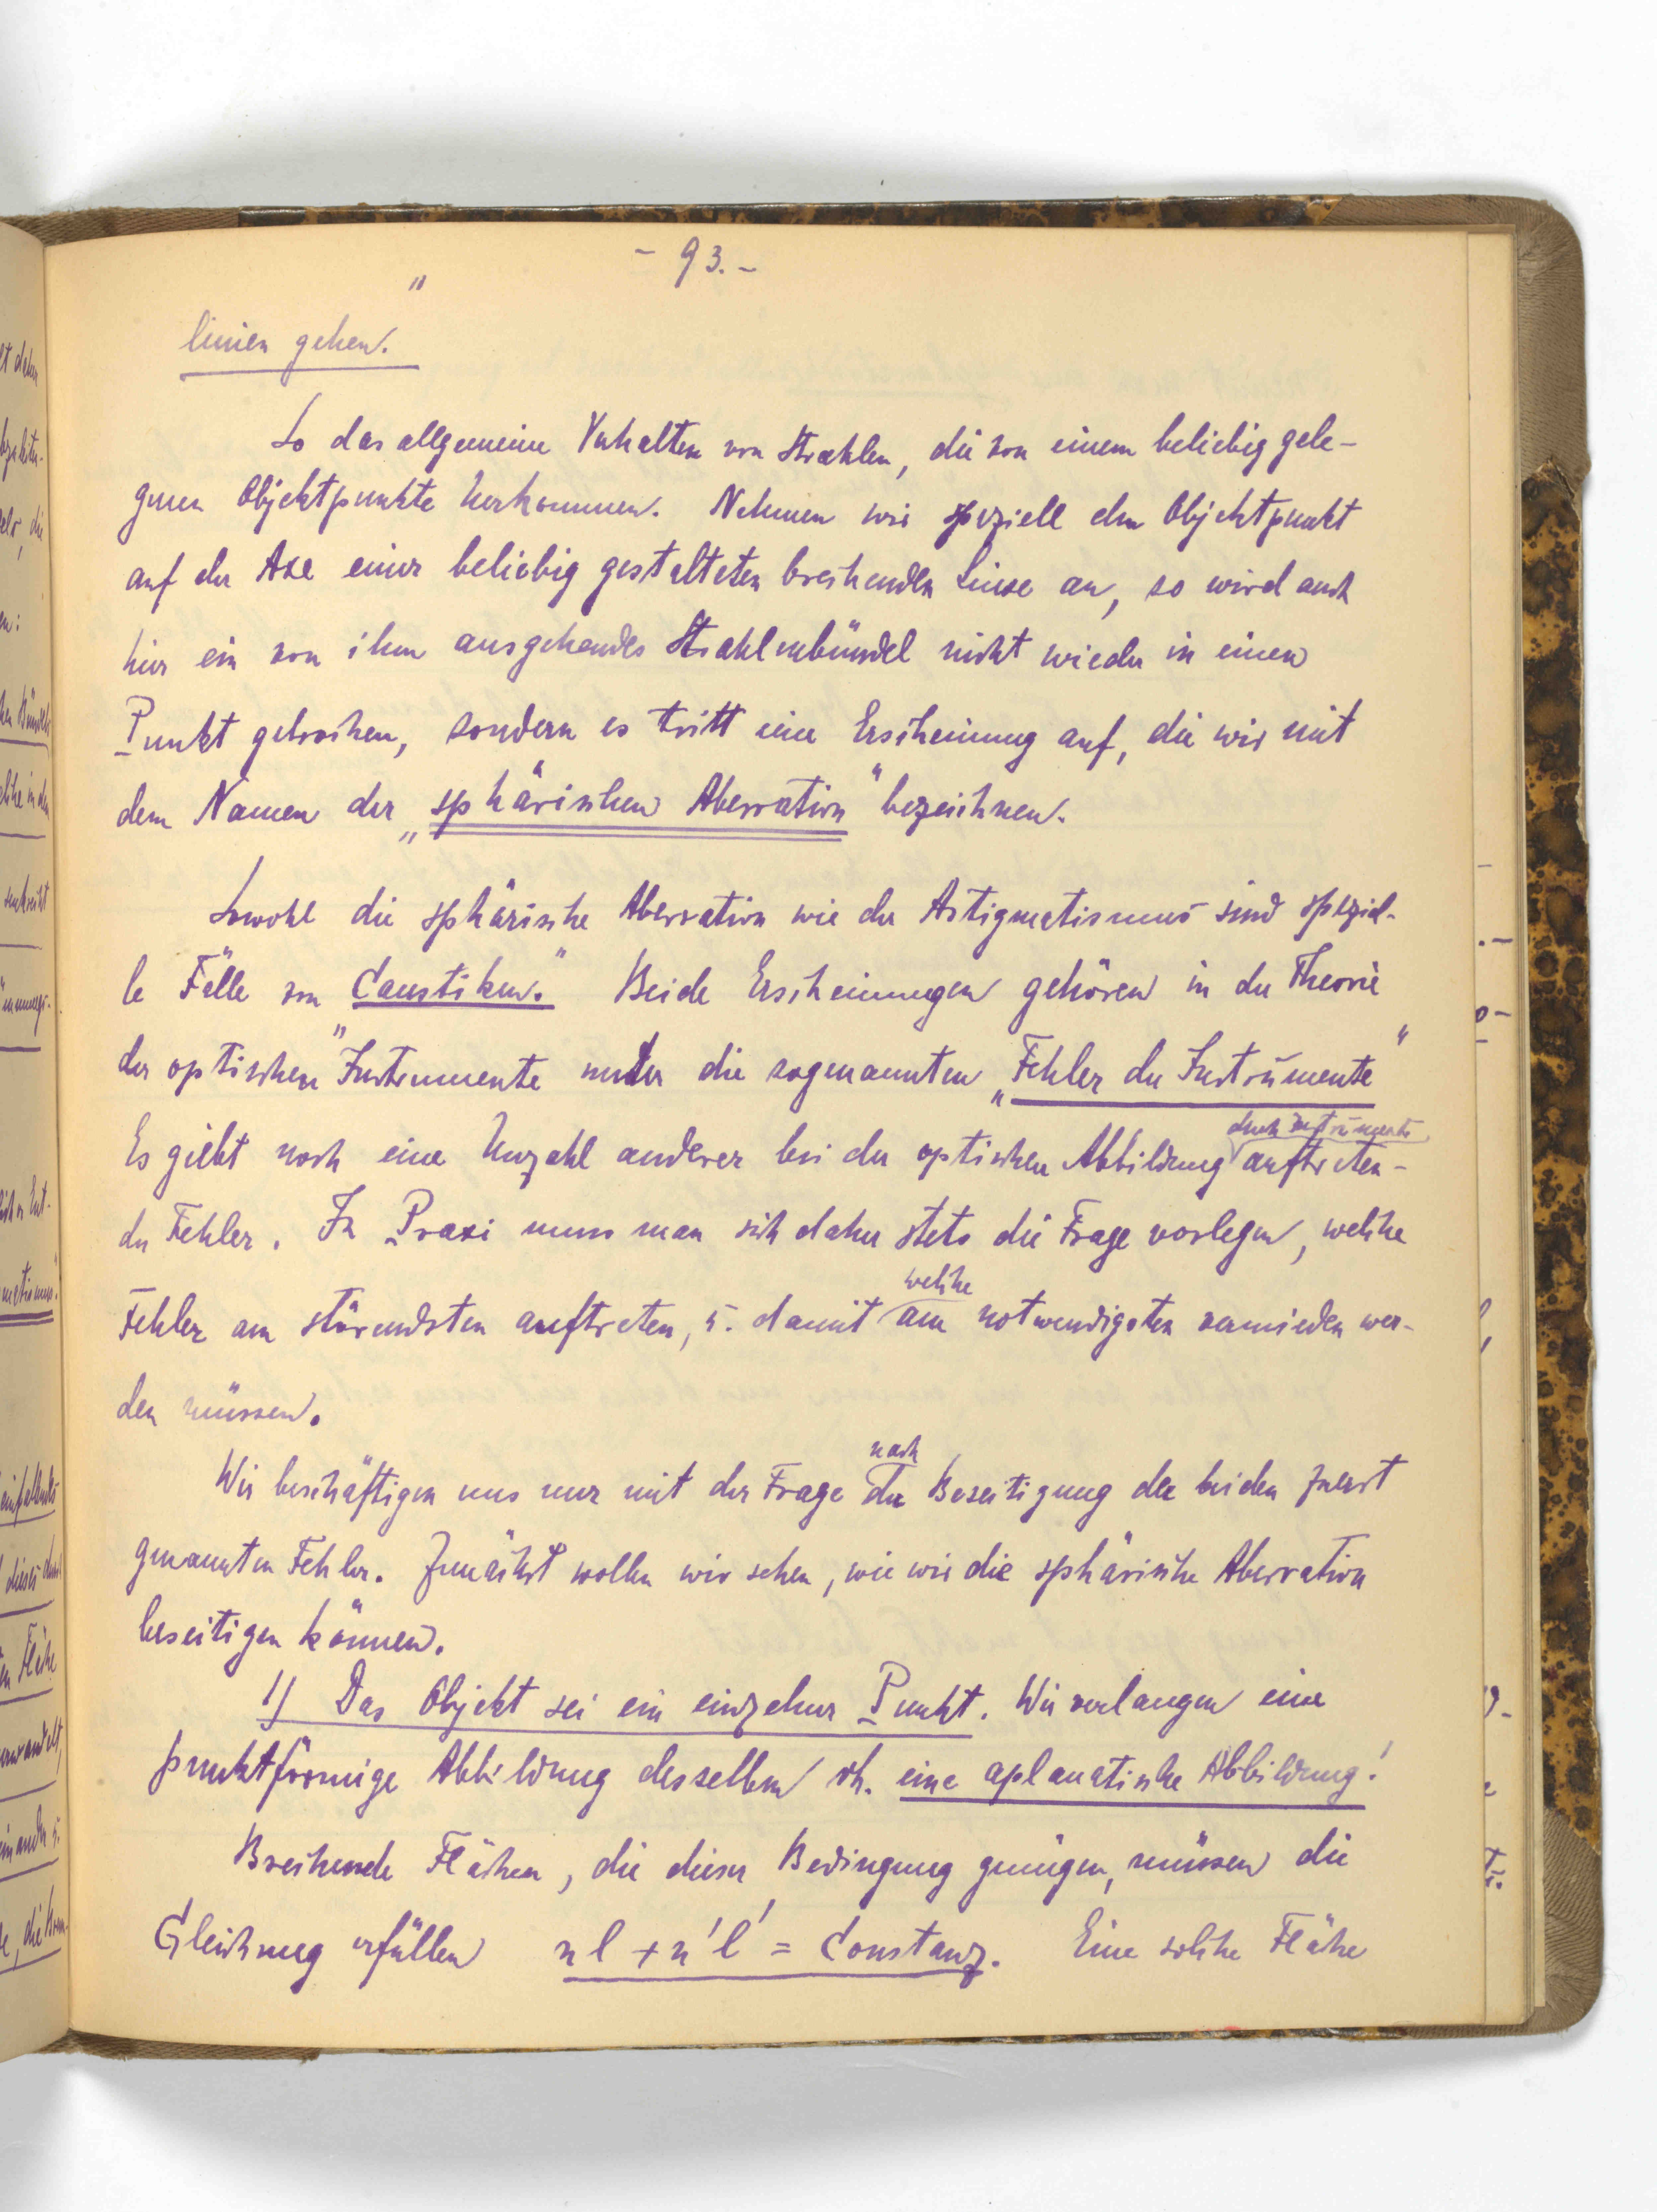 - 93. -
linien gehen."
So das allgemeine Verhalten von Strahlen, die von einem beliebig gele-
genen Objektpunkte herkommen. Nehmen wir speziell den Objektpunkt
auf der Axe einer beliebig gestalteten brechenden Linse an, so wird auch
hier ein von ihm ausgehendes Strahlenbündel nicht wieder in einen
Punkt gebrochen, sondern es tritt eine Erscheinung auf, die wir mit
dem Namen der „sphärischen Aberration" bezeichnen.
Sowohl die sphärische Aberration wie der Astigmatismus sind speziel-
le Fälle von Caustiken." Beide Erscheinungen gehören in der Theorie
der optischen "Instrumente unter die sogenannten „Fehler der Instrumente"
durch Instrumente
Es giebt noch eine Unzahl anderer bei der optischen Abbildung auftreten-
der Fehler. In Praxi muss man sich daher stets die Frage vorlegen, welche
welche
Fehler am störendsten auftreten, u. damit am notwendigsten vermieden wer-
den müssen.
nach
Wir beschäftigen uns nur mit der Frage der Beseitigung der beiden zuerst
genannten Fehler. Zunächst wollen wir sehen, wie wir die sphärische Aberration
beseitigen können.
1) Das Objekt sei ein einzelner Punkt. Wir verlangen eine
punktförmige Abbildung desselben dh. eine aplanatische Abbildung!
Brechende Flächen, die dieser Bedingung genügen, müssen die
Gleichung erfüllen nl + n'l' = Constanz. Eine solche Fläche